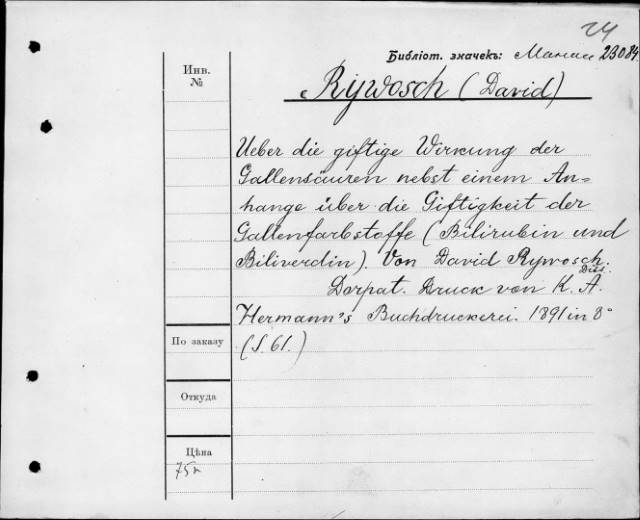 24
Библіот. значекъ: 23084
Инв.
№
Rywosch (David)
Ueber die giftige Wirkung der
Gallensäuren nebst einem An=
hange über die Giftigkeit der
Gallenfarbstoffe (Bilirubin und
Biliverdin). Von David Rywosch.
Diss.
Dorpat. Druck von K. A.
Hermann's Buchdruckerei. 1891 in 8°
(S. 61.)
По заказу
Откуда
Цѣна
75к